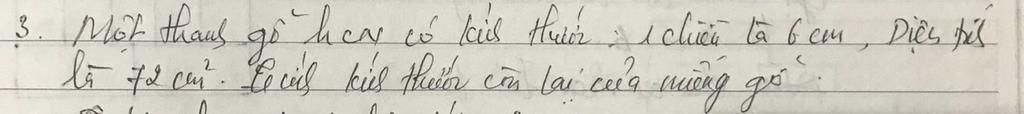 3. Một thanh gỗ hcn có kích thước : 1 chiều là 6 cm, Diện tích
là 72 cm². kích thước còn lại của miếng gỗ.